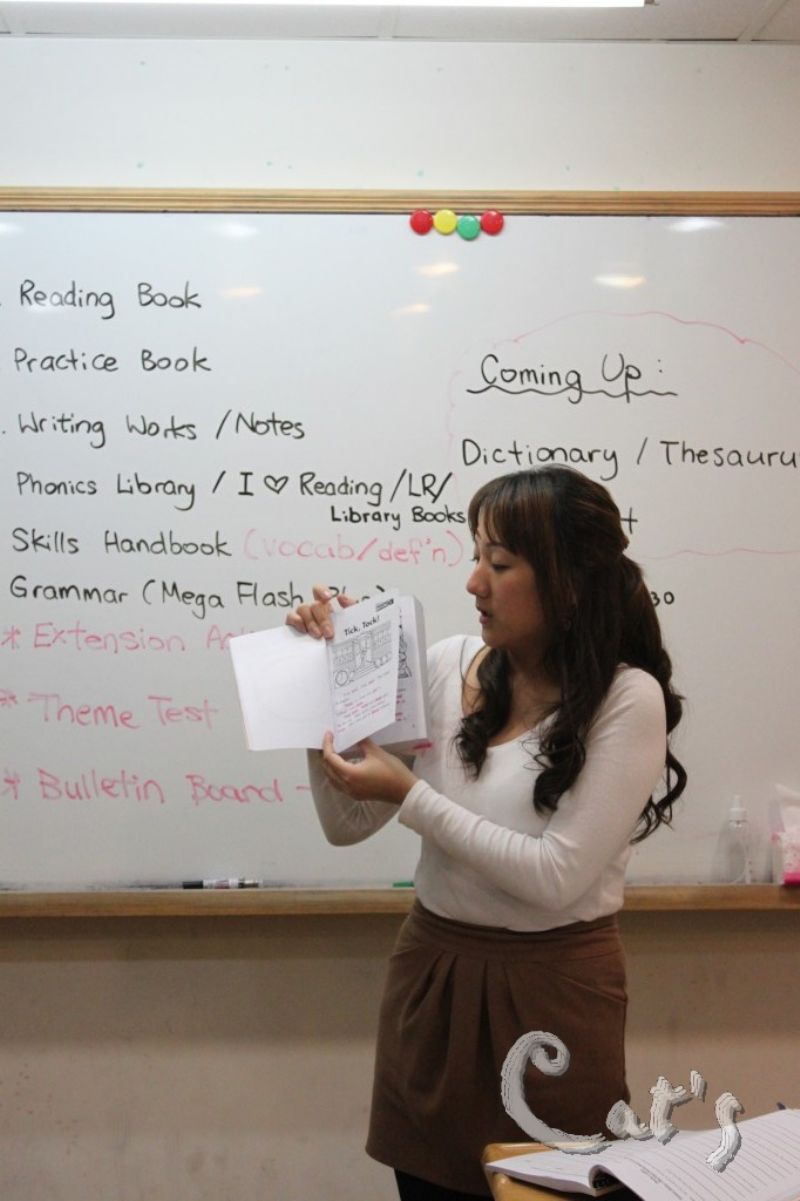 Reading Book
Practice Book
Writing Works / Notes
Phonics Library / I ♡ Reading / LR /
Library Books
Skills Handbook (vocab/def'n)
Grammar (Mega Flash
* Extension
* Theme Test
* Bulletin Board -
Coming Up :
Dictionary / Thesauru
Tick, Tock!
Cat's